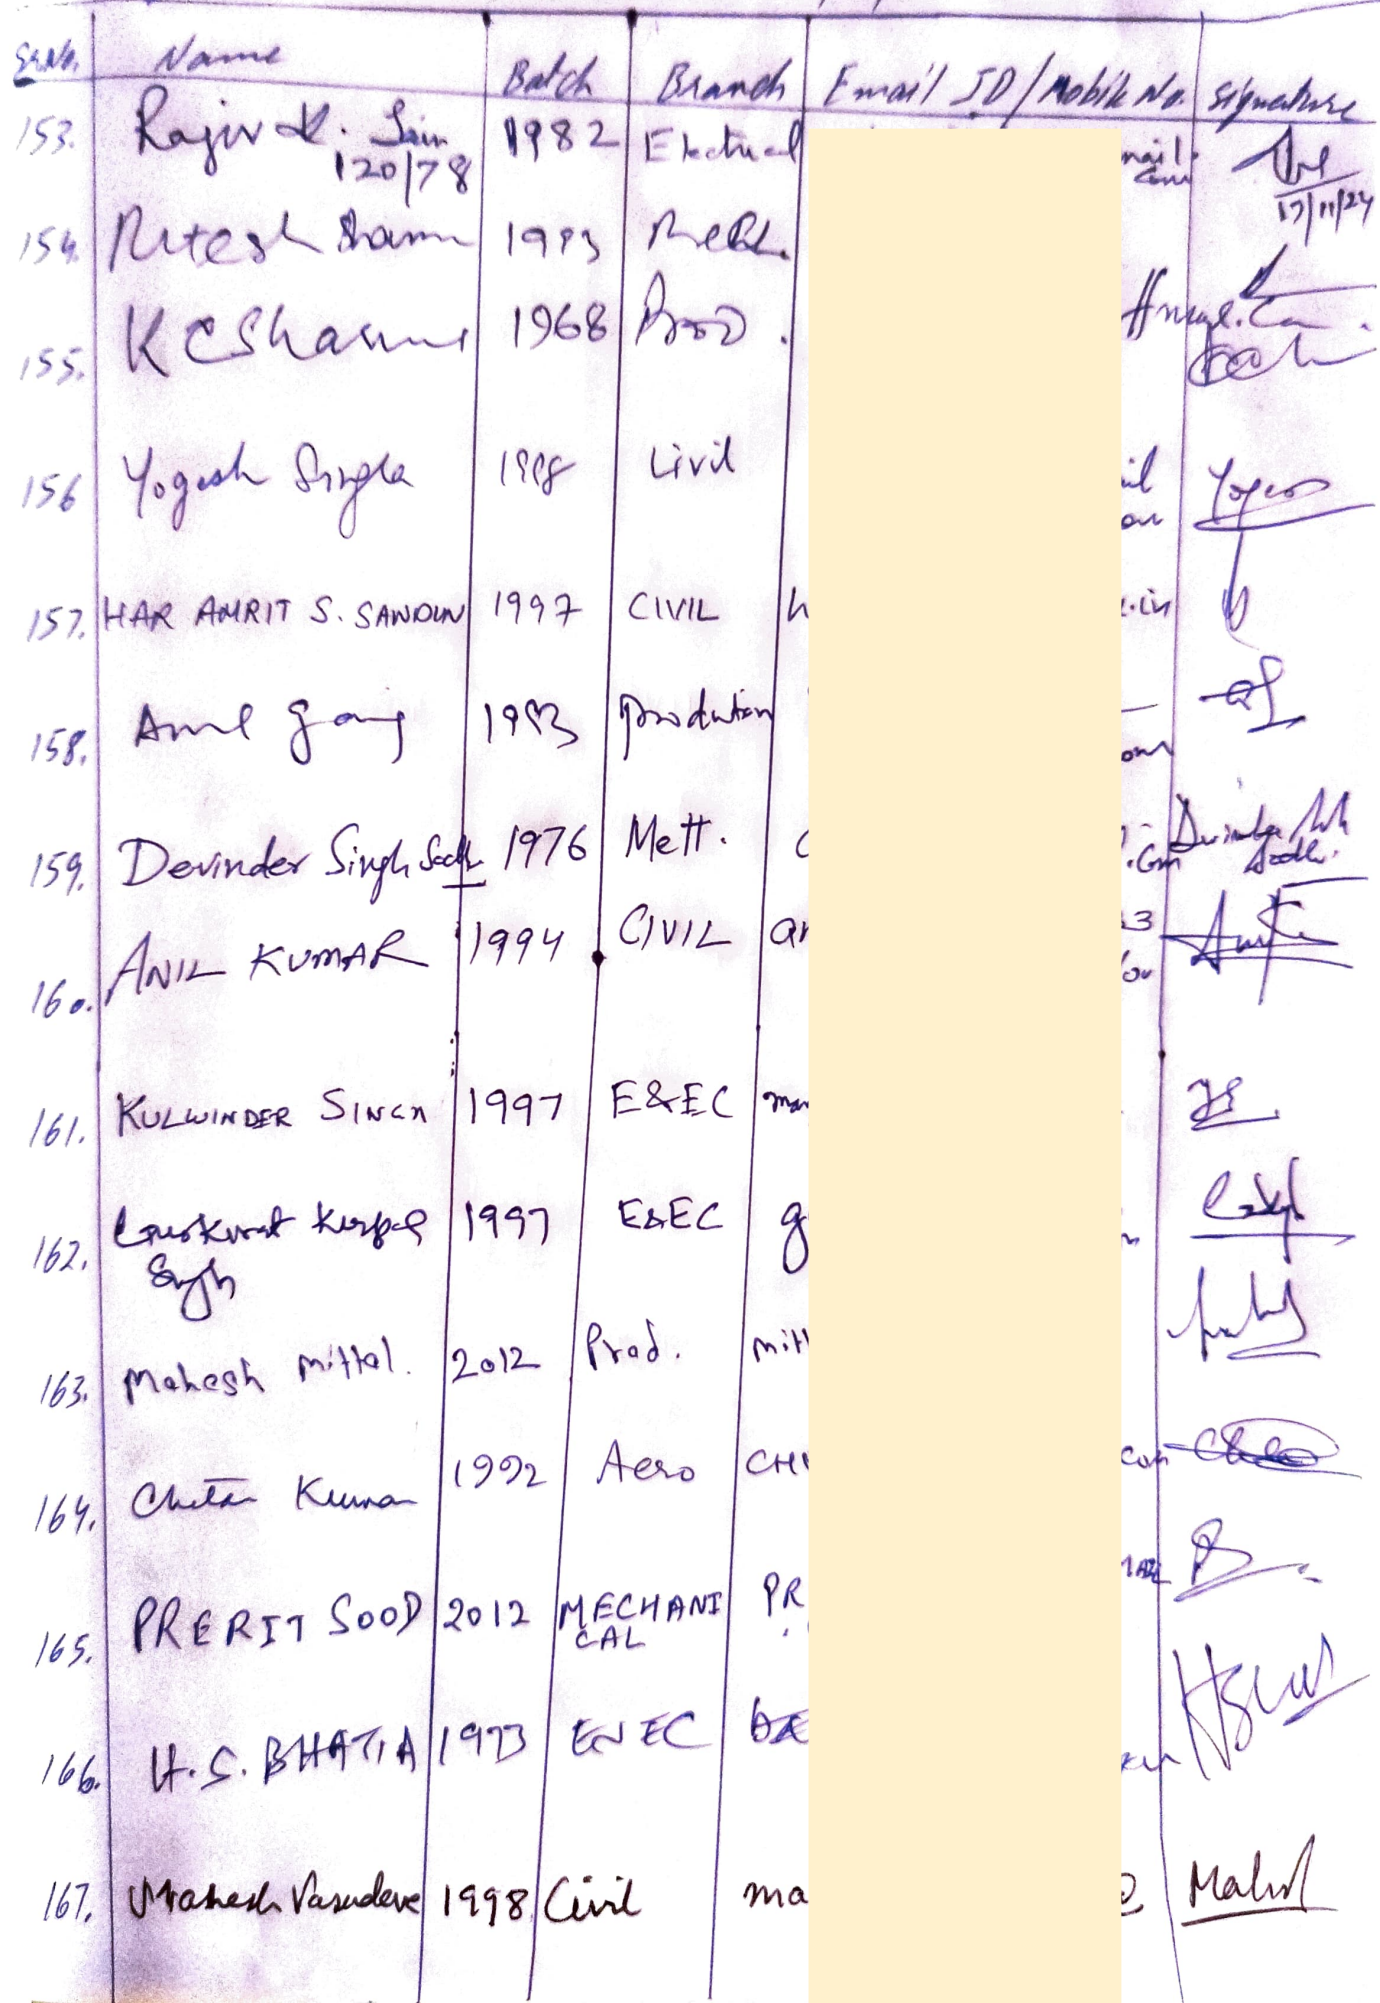 Sr.No. Name Batch Branch Email ID/Mobile No. Signature
153. Rajiv K. Jain 1982 Electrical mail.
120/78 com
17/11/24
154. Ritesh Sharma 1993 Mech.
155. K C Sharma 1968 Prod.
156 Yogesh Singla 1998 Civil il
157. HAR AMRIT S. SANDHU 1997 CIVIL h .in
158. Anil Garg 1993 production
om
159. Devinder Singh Sodhi 1976 Mett. .Com
160. ANIL KUMAR 1994 CIVIL an 23
161. KULWINDER SINGH 1997 E&EC man
162. Gurkirat Kirpal 1997 E&EC g
Singh
163. Mahesh Mittal. 2012 Prod. mitt
164. Chetan Kumar 1992 Aero CH com
165. PRERIT SOOD 2012 MECHANI PR
CAL
166. H.S. BHATIA 1973 EN EC
167. Mahesh Vasudeva 1998 Civil ma @